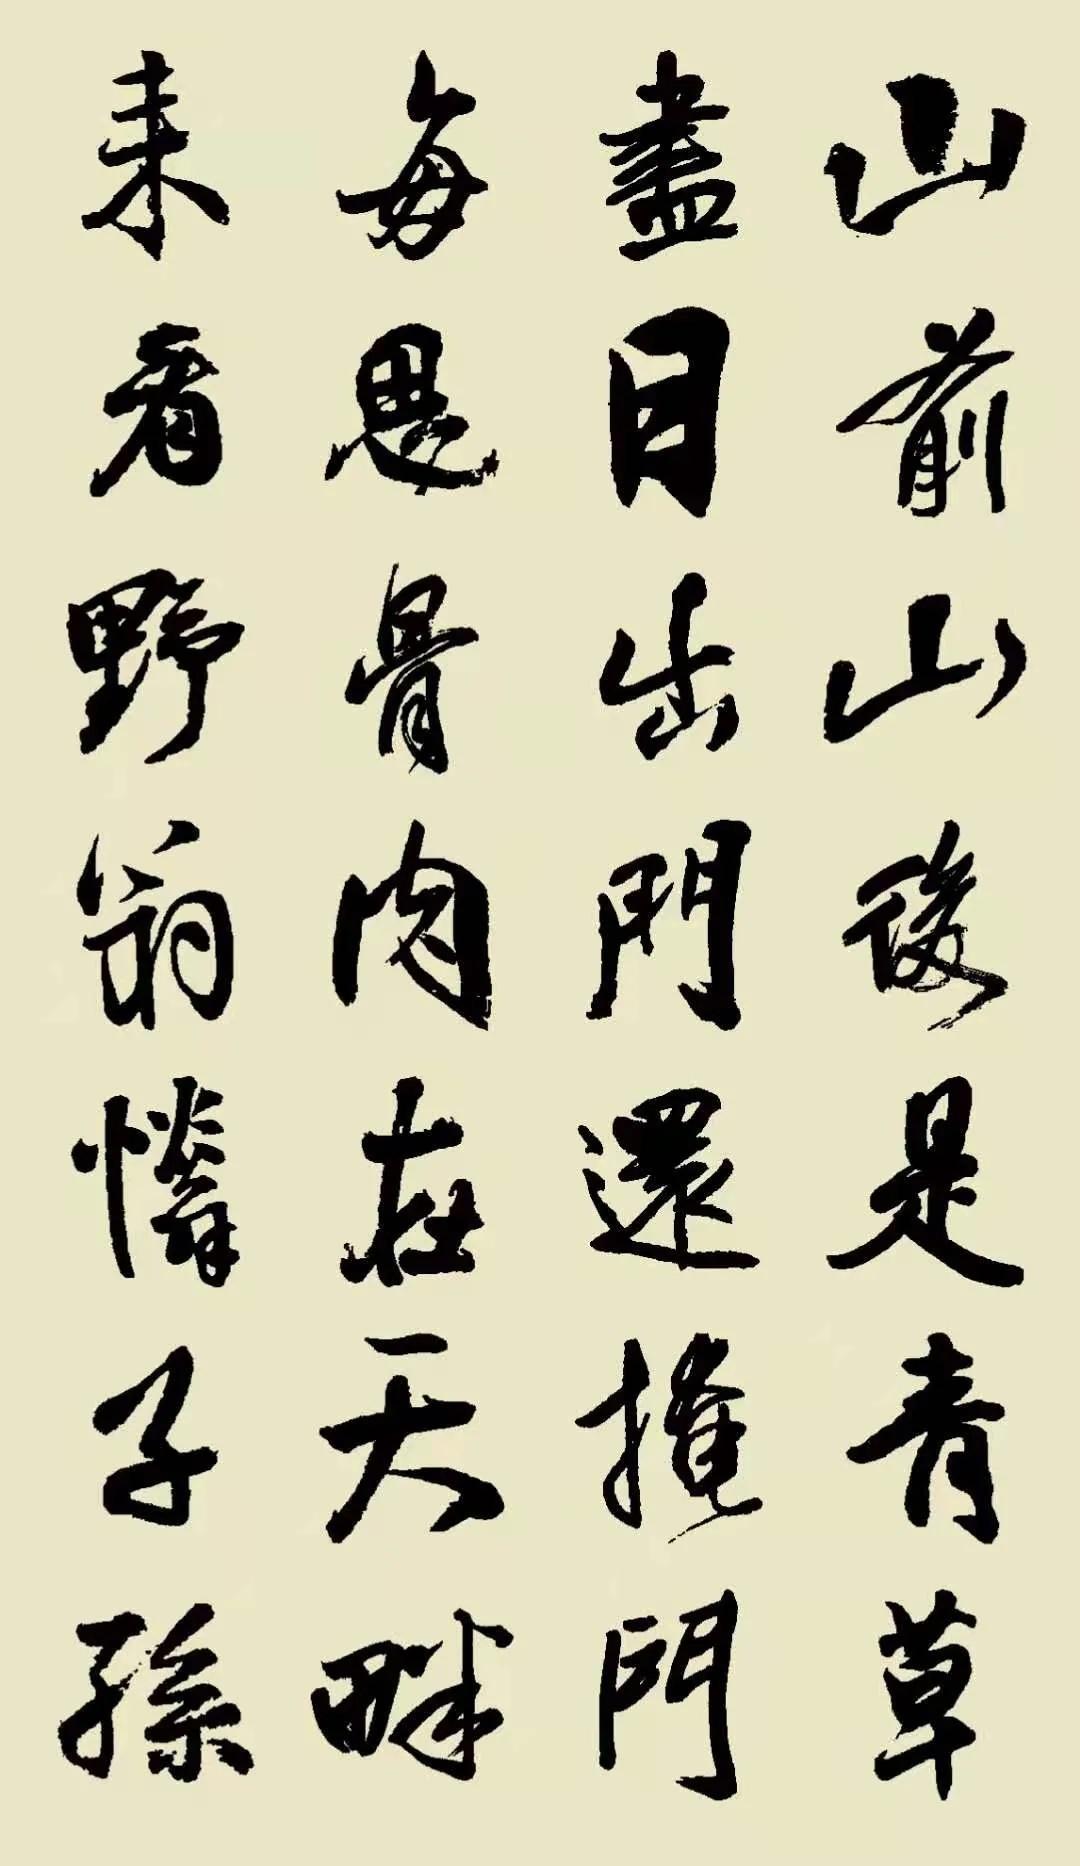 山前山後是青草
盡日出門還掩門
每思骨肉在天畔
来看野翁憐子孫